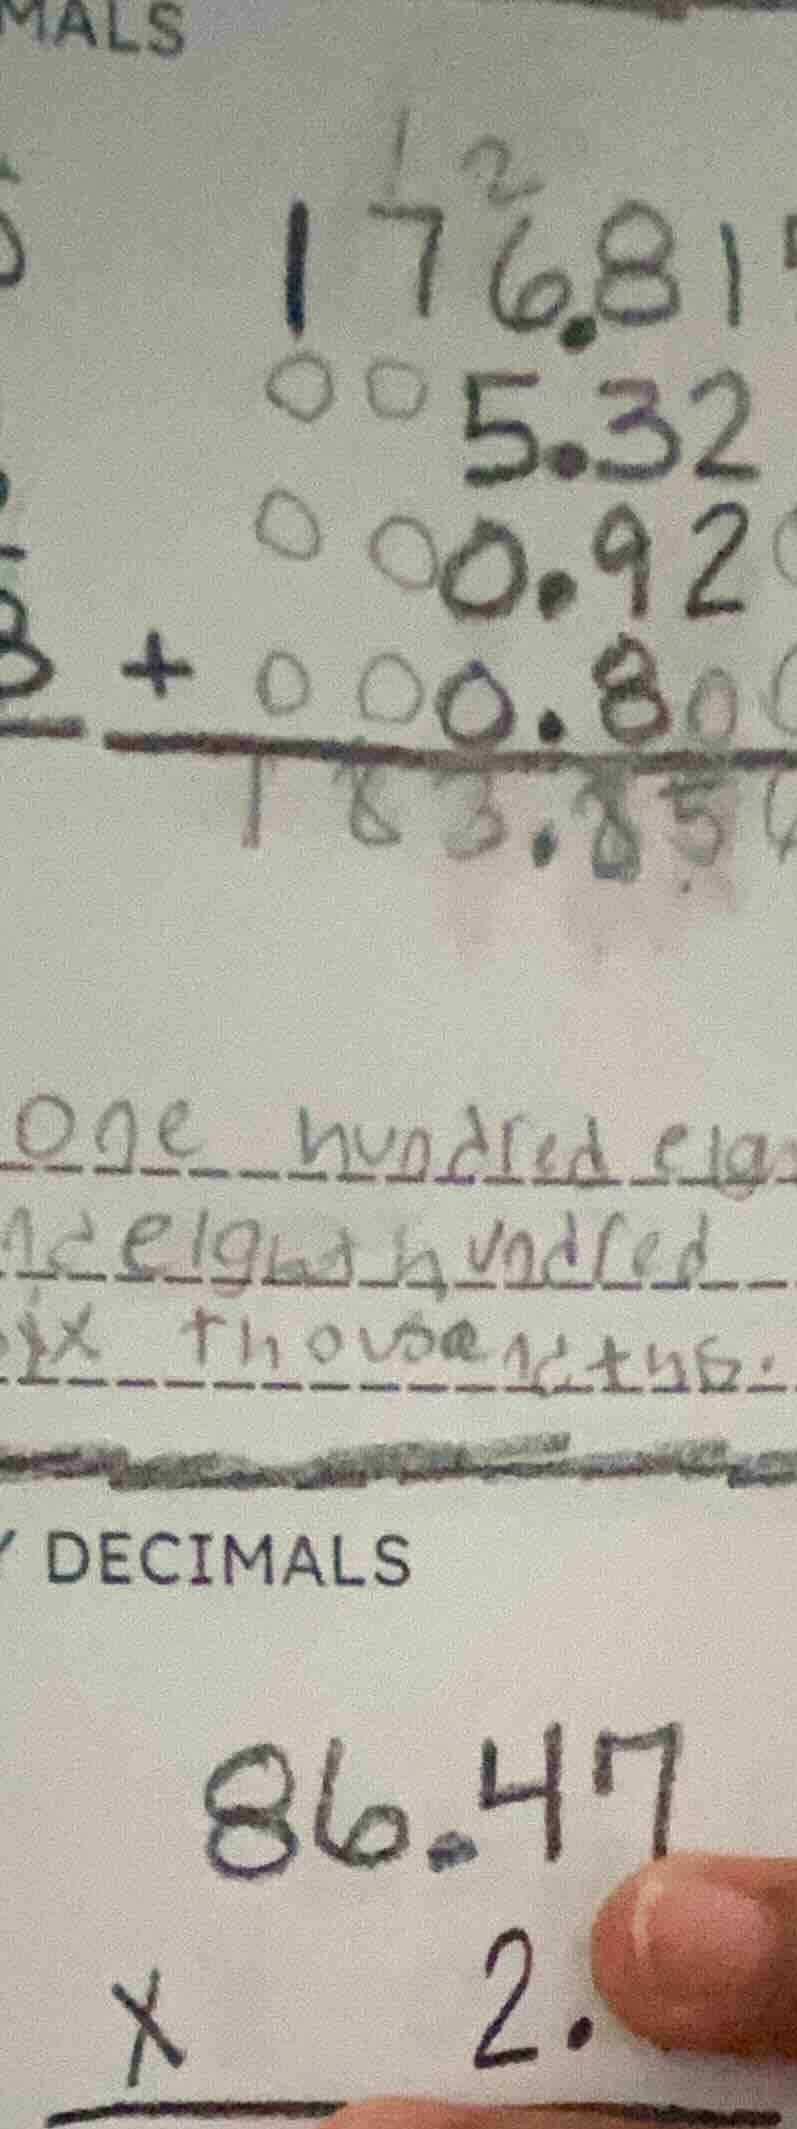 MALS
1 2
176.81
005.32
000.92
+ 000.80
183.85
one hundred eig
nd eight hundred
ix thousandths.
DECIMALS
86.47
x 2.